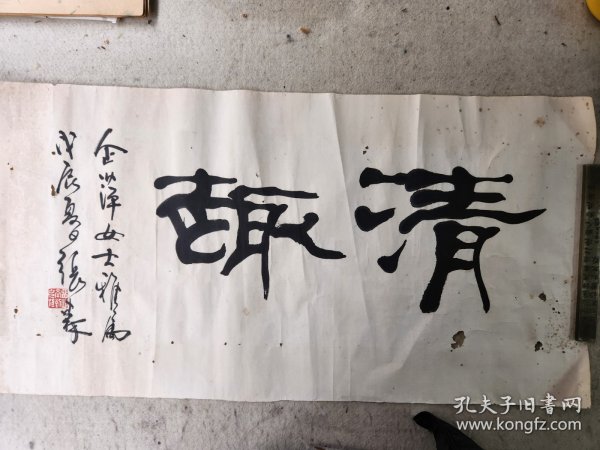 清趣
金萍女士雅属
戊辰夏日張森
孔夫子旧書网
www.kongfz.com